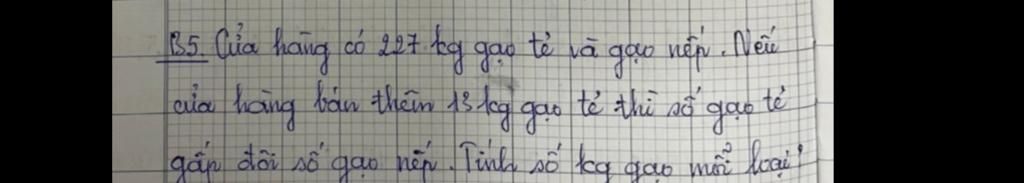 B5. Cửa hàng có 227 kg gạo tẻ và gạo nếp. Nếu
cửa hàng bán thêm 13 kg gạo tẻ thì số gạo tẻ
gấp đôi số gạo nếp. Tính số kg gạo mỗi loại?